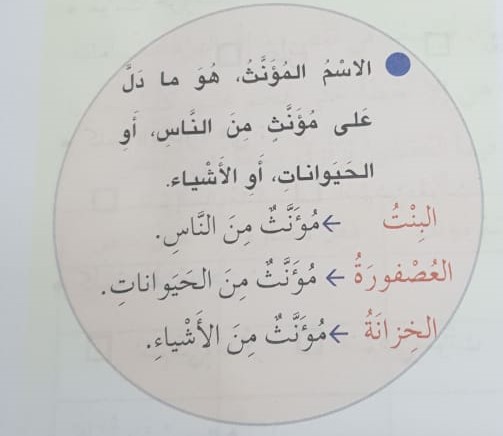 الاسْمُ المُؤَنَّثُ، هُوَ ما دَلَّ
عَلى مُؤَنَّثٍ مِنَ النَّاسِ، أَو
الحَيَوانات، أَوِ الأَشْياء.
البِنْتُ ← مُؤَنَّثٌ مِنَ النَّاسِ.
العُصْفورَةُ ← مُؤَنَّثٌ مِنَ الحَيَواناتِ.
الخِزانَةُ ← مُؤَنَّثٌ مِنَ الأَشْياءِ.